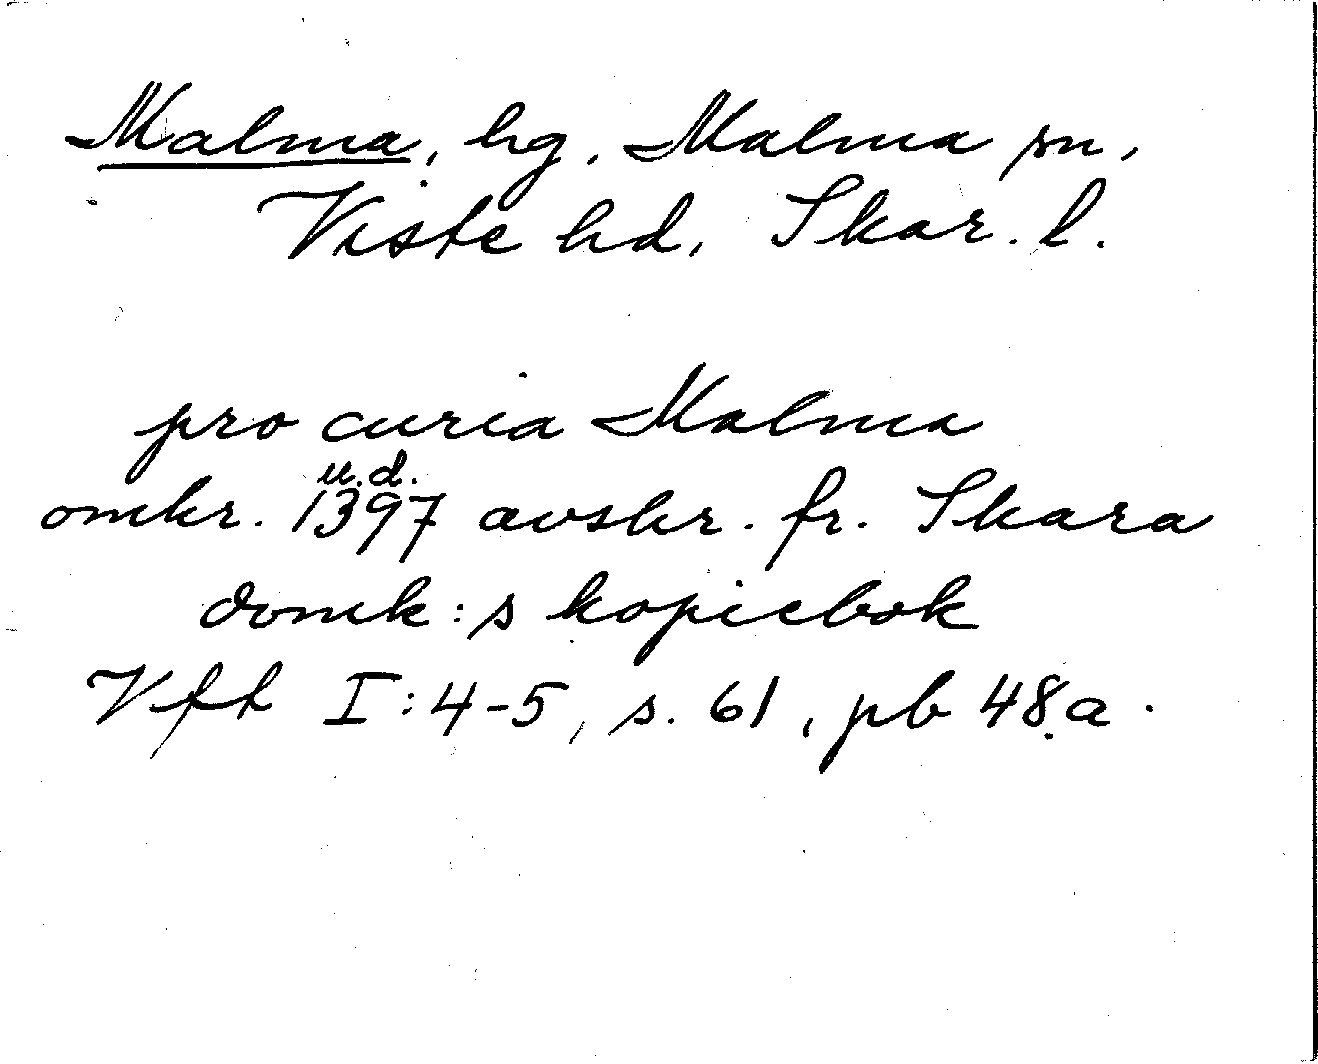 Malma, hg. Malma sn,
Viste hd, Skar. l.
pro curia Malma
u.d.
omkr. 1397 avskr. fr. Skara
domk:s kopiebok
Vft I:4-5, s. 61, pb 48a.